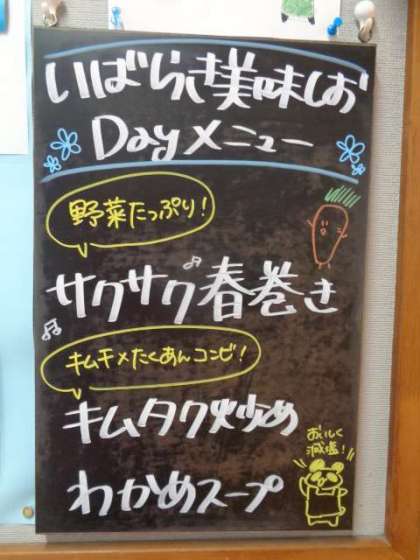 いばらき美味しお
Dayメニュー
野菜たっぷり!
サクサク春巻き
キムチ×たくあんコンビ!
キムタク炒め
おいしく
減塩!
わかめスープ